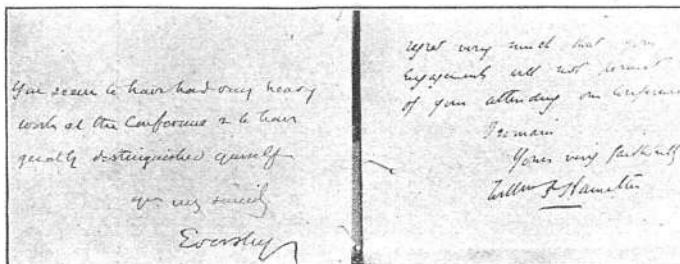 You seem to have had very heavy
work at the Conference & to have
greatly distinguished yourself
yrs very sincerely
Eversley
regret very much that your
Engagements will not permit
of your attending our Conference
I remain
Yours very faithfully
F Hamilton